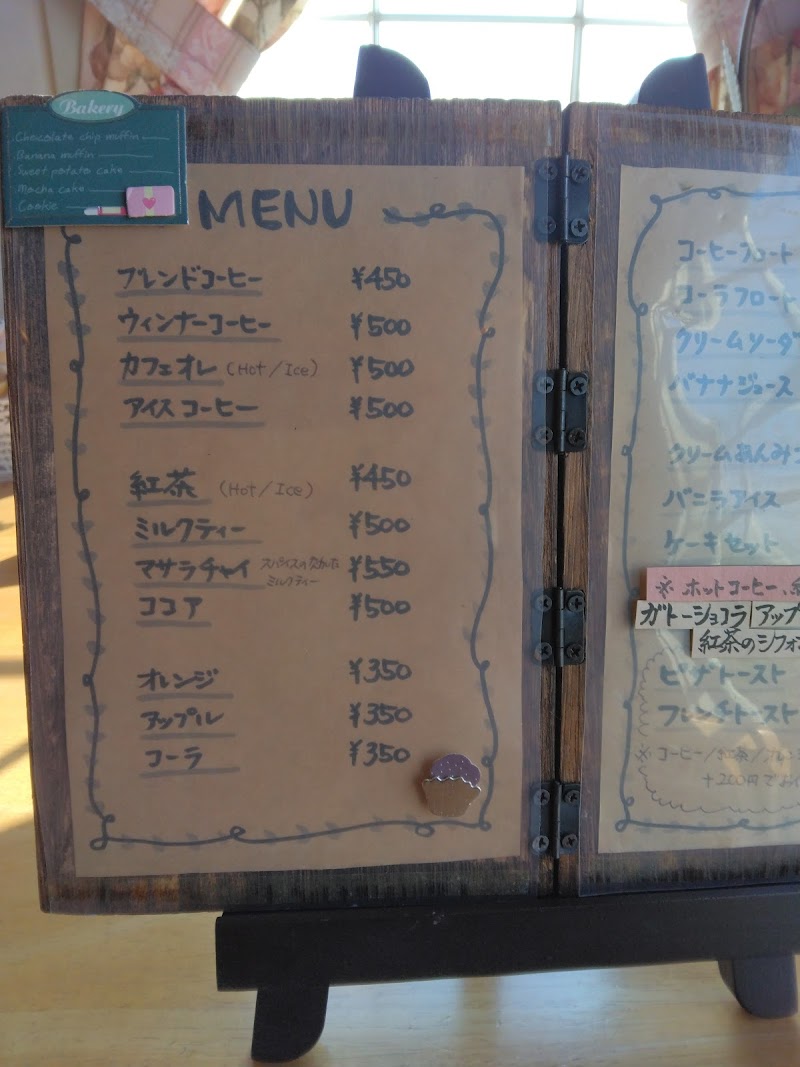 Bakery
Chocolate chip muffin
Banana muffin
Sweet potato cake
Mocha cake
Cookie
MENU
ブレンドコーヒー ¥450
ウィンナーコーヒー ¥500
カフェオレ (Hot/Ice) ¥500
アイスコーヒー ¥500
紅茶 (Hot/Ice) ¥450
ミルクティー ¥500
マサラチャイ スパイスの効いた ¥550
ミルクティー
ココア ¥500
オレンジ ¥350
アップル ¥350
コーラ ¥350
コーヒーフロート
コーラフロート
クリームソーダ
バナナジュース
クリームあんみつ
バニラアイス
ケーキセット
※ ホットコーヒー、
ガトーショコラ アップ
紅茶のシフォン
ピザトースト
フレンチトースト
※ コーヒー/紅茶/オレンジ
+200円で